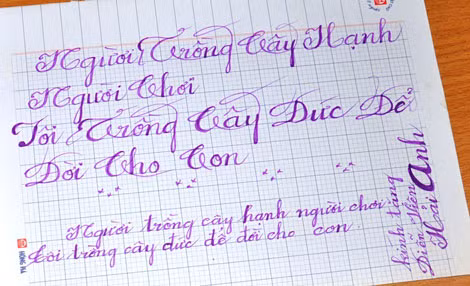 Người Trồng Cây Hạnh
Người Chơi
Tôi Trồng Cây Đức Để
Đời Cho Con
Người trồng cây hạnh người chơi.
Tôi trồng cây đức để đời cho con.
kính tặng
Diễn Viên
Hải Anh
HỒNG HÀ